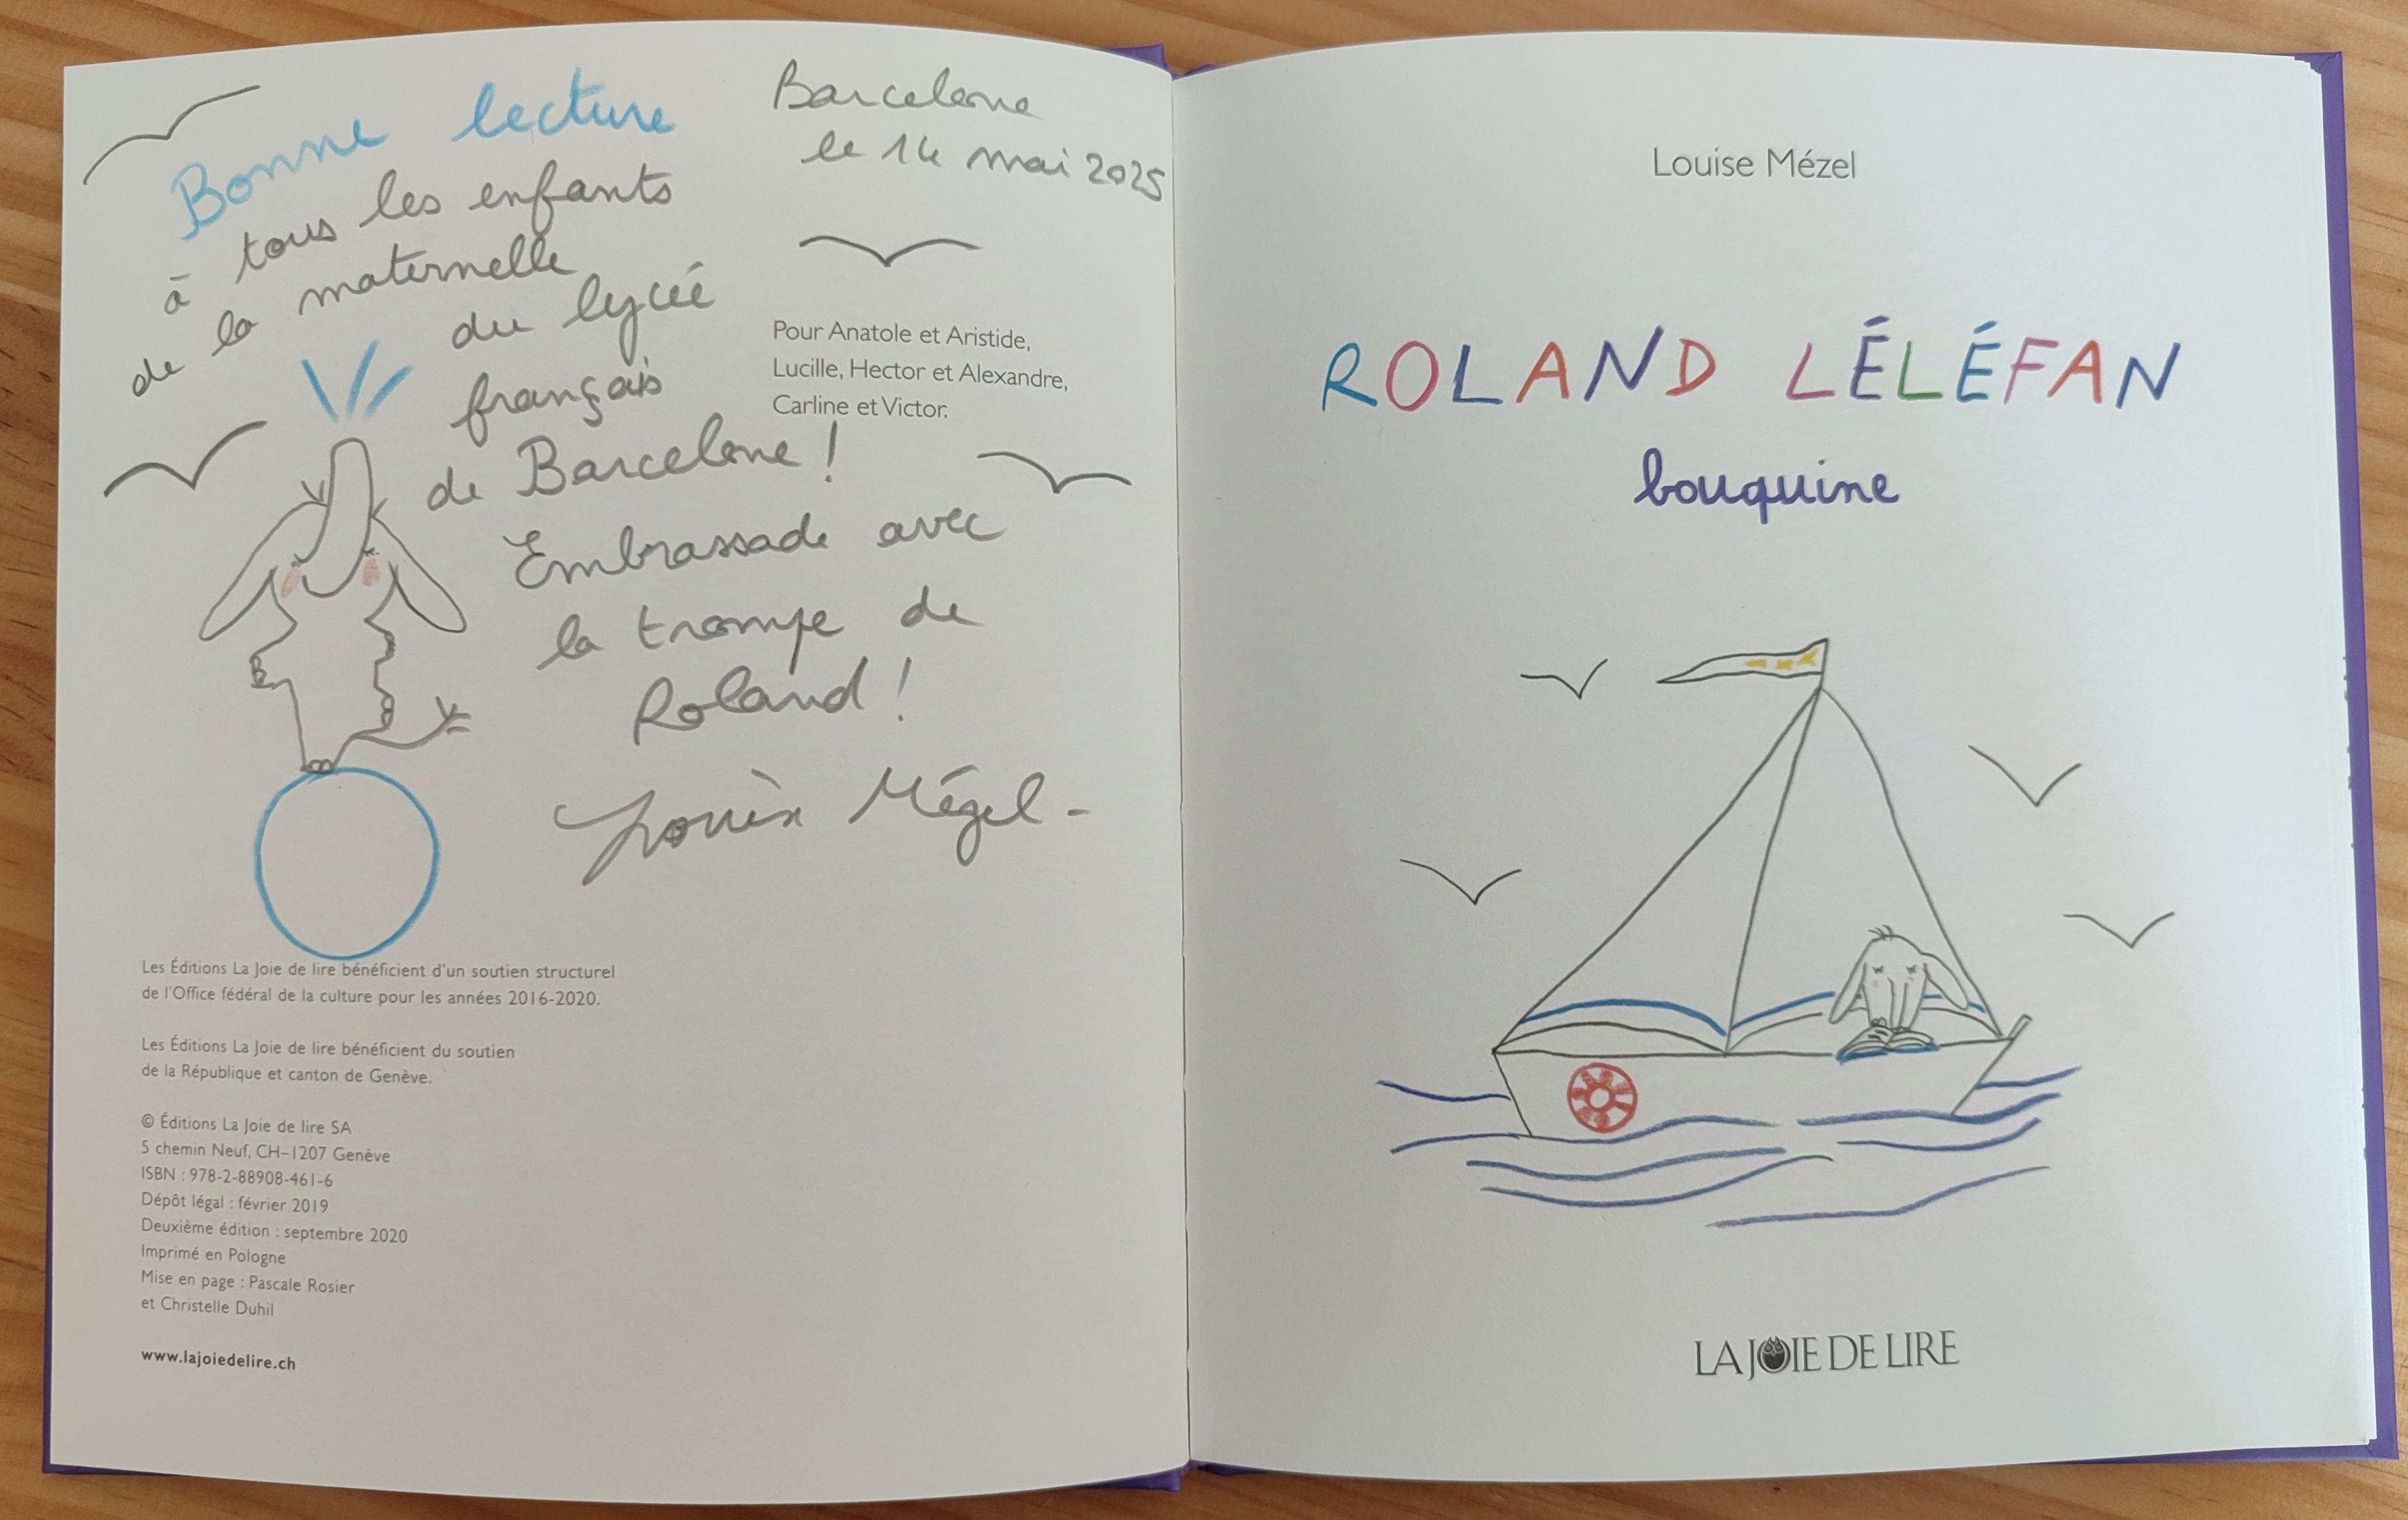 Bonne lecture
à tous les enfants
de la maternelle
du lycée
français
de Barcelone !
Embrassade avec
la trompe de
Roland !
Louise Mézel -
Barcelone
le 14 mai 2025
Pour Anatole et Aristide,
Lucille, Hector et Alexandre,
Carline et Victor.
Les Éditions La Joie de lire bénéficient d'un soutien structurel
de l'Office fédéral de la culture pour les années 2016-2020.
Les Éditions La Joie de lire bénéficient du soutien
de la République et canton de Genève.
© Éditions La Joie de lire SA
5 chemin Neuf, CH–1207 Genève
ISBN : 978-2-88908-461-6
Dépôt légal : février 2019
Deuxième édition : septembre 2020
Imprimé en Pologne
Mise en page : Pascale Rosier
et Christelle Duhil
www.lajoiedelire.ch
Louise Mézel
ROLAND LÉLÉFAN
bouquine
LA JOIE DE LIRE